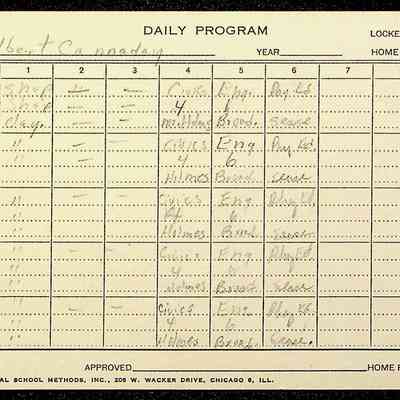 DAILY PROGRAM
LOCKE
Albert Cannaday YEAR HOME
1 2 3 4 5 6 7
Shop — — Civics Eng. Phy Ed.
Shop — — 4 6
Clay. — — Mr. Holmes Broad.
" — — Civics Eng Phy Ed.
" — 4 6
" Holmes Broad
" — — Civics Eng Phy Ed.
" 4 6
" Holmes Broad
" — — Civics Eng Phy Ed.
" 4 6
" Holmes Broad
" — — Civics Eng. Phy Ed.
" 4 6
" Holmes Broad.
APPROVED HOME R
AL SCHOOL METHODS, INC., 205 W. WACKER DRIVE, CHICAGO 6, ILL.